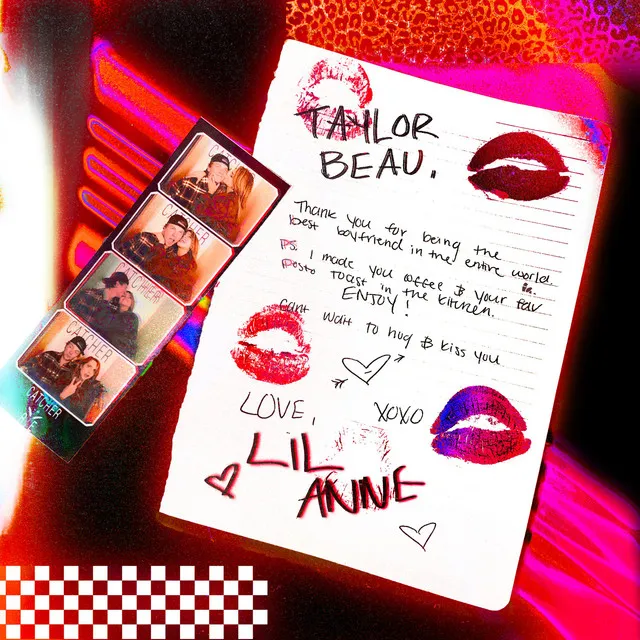 TAYLOR
BEAU.
Thank you for being the
best boyfriend in the entire world.
PS. I made you coffee & your fav
pesto toast in the kitchen.
ENJOY!
Cant wait to hug & kiss you
LOVE, XOXO
LIL
ANNE
CATCHER
CATCHER
CATCHER
CATCHER
CATCHER